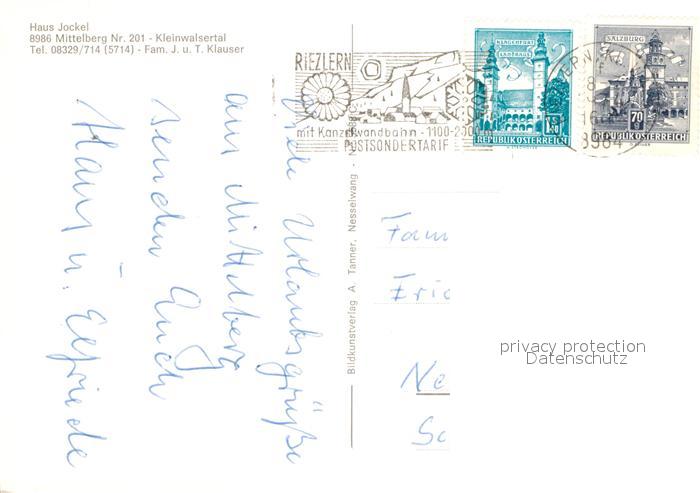 Haus Jockel
8986 Mittelberg Nr. 201 - Kleinwalsertal
Tel. 08329/714 (5714) - Fam. J. u. T. Klauser
RIEZLERN
mit Kanzelwandbahn - 1100-2000
POSTSONDERTARIF
KLAGENFURT
LANDHAUS
REPUBLIK ÖSTERREICH
SALZBURG
70
REPUBLIK ÖSTERREICH
Viele Urlaubsgrüße
aus Mittelberg
senden Euch
Hans u. Elfriede
Bildkunstverlag A. Tanner, Nesselwang -
Fam
Eric
Ne
Sc
privacy protection
Datenschutz